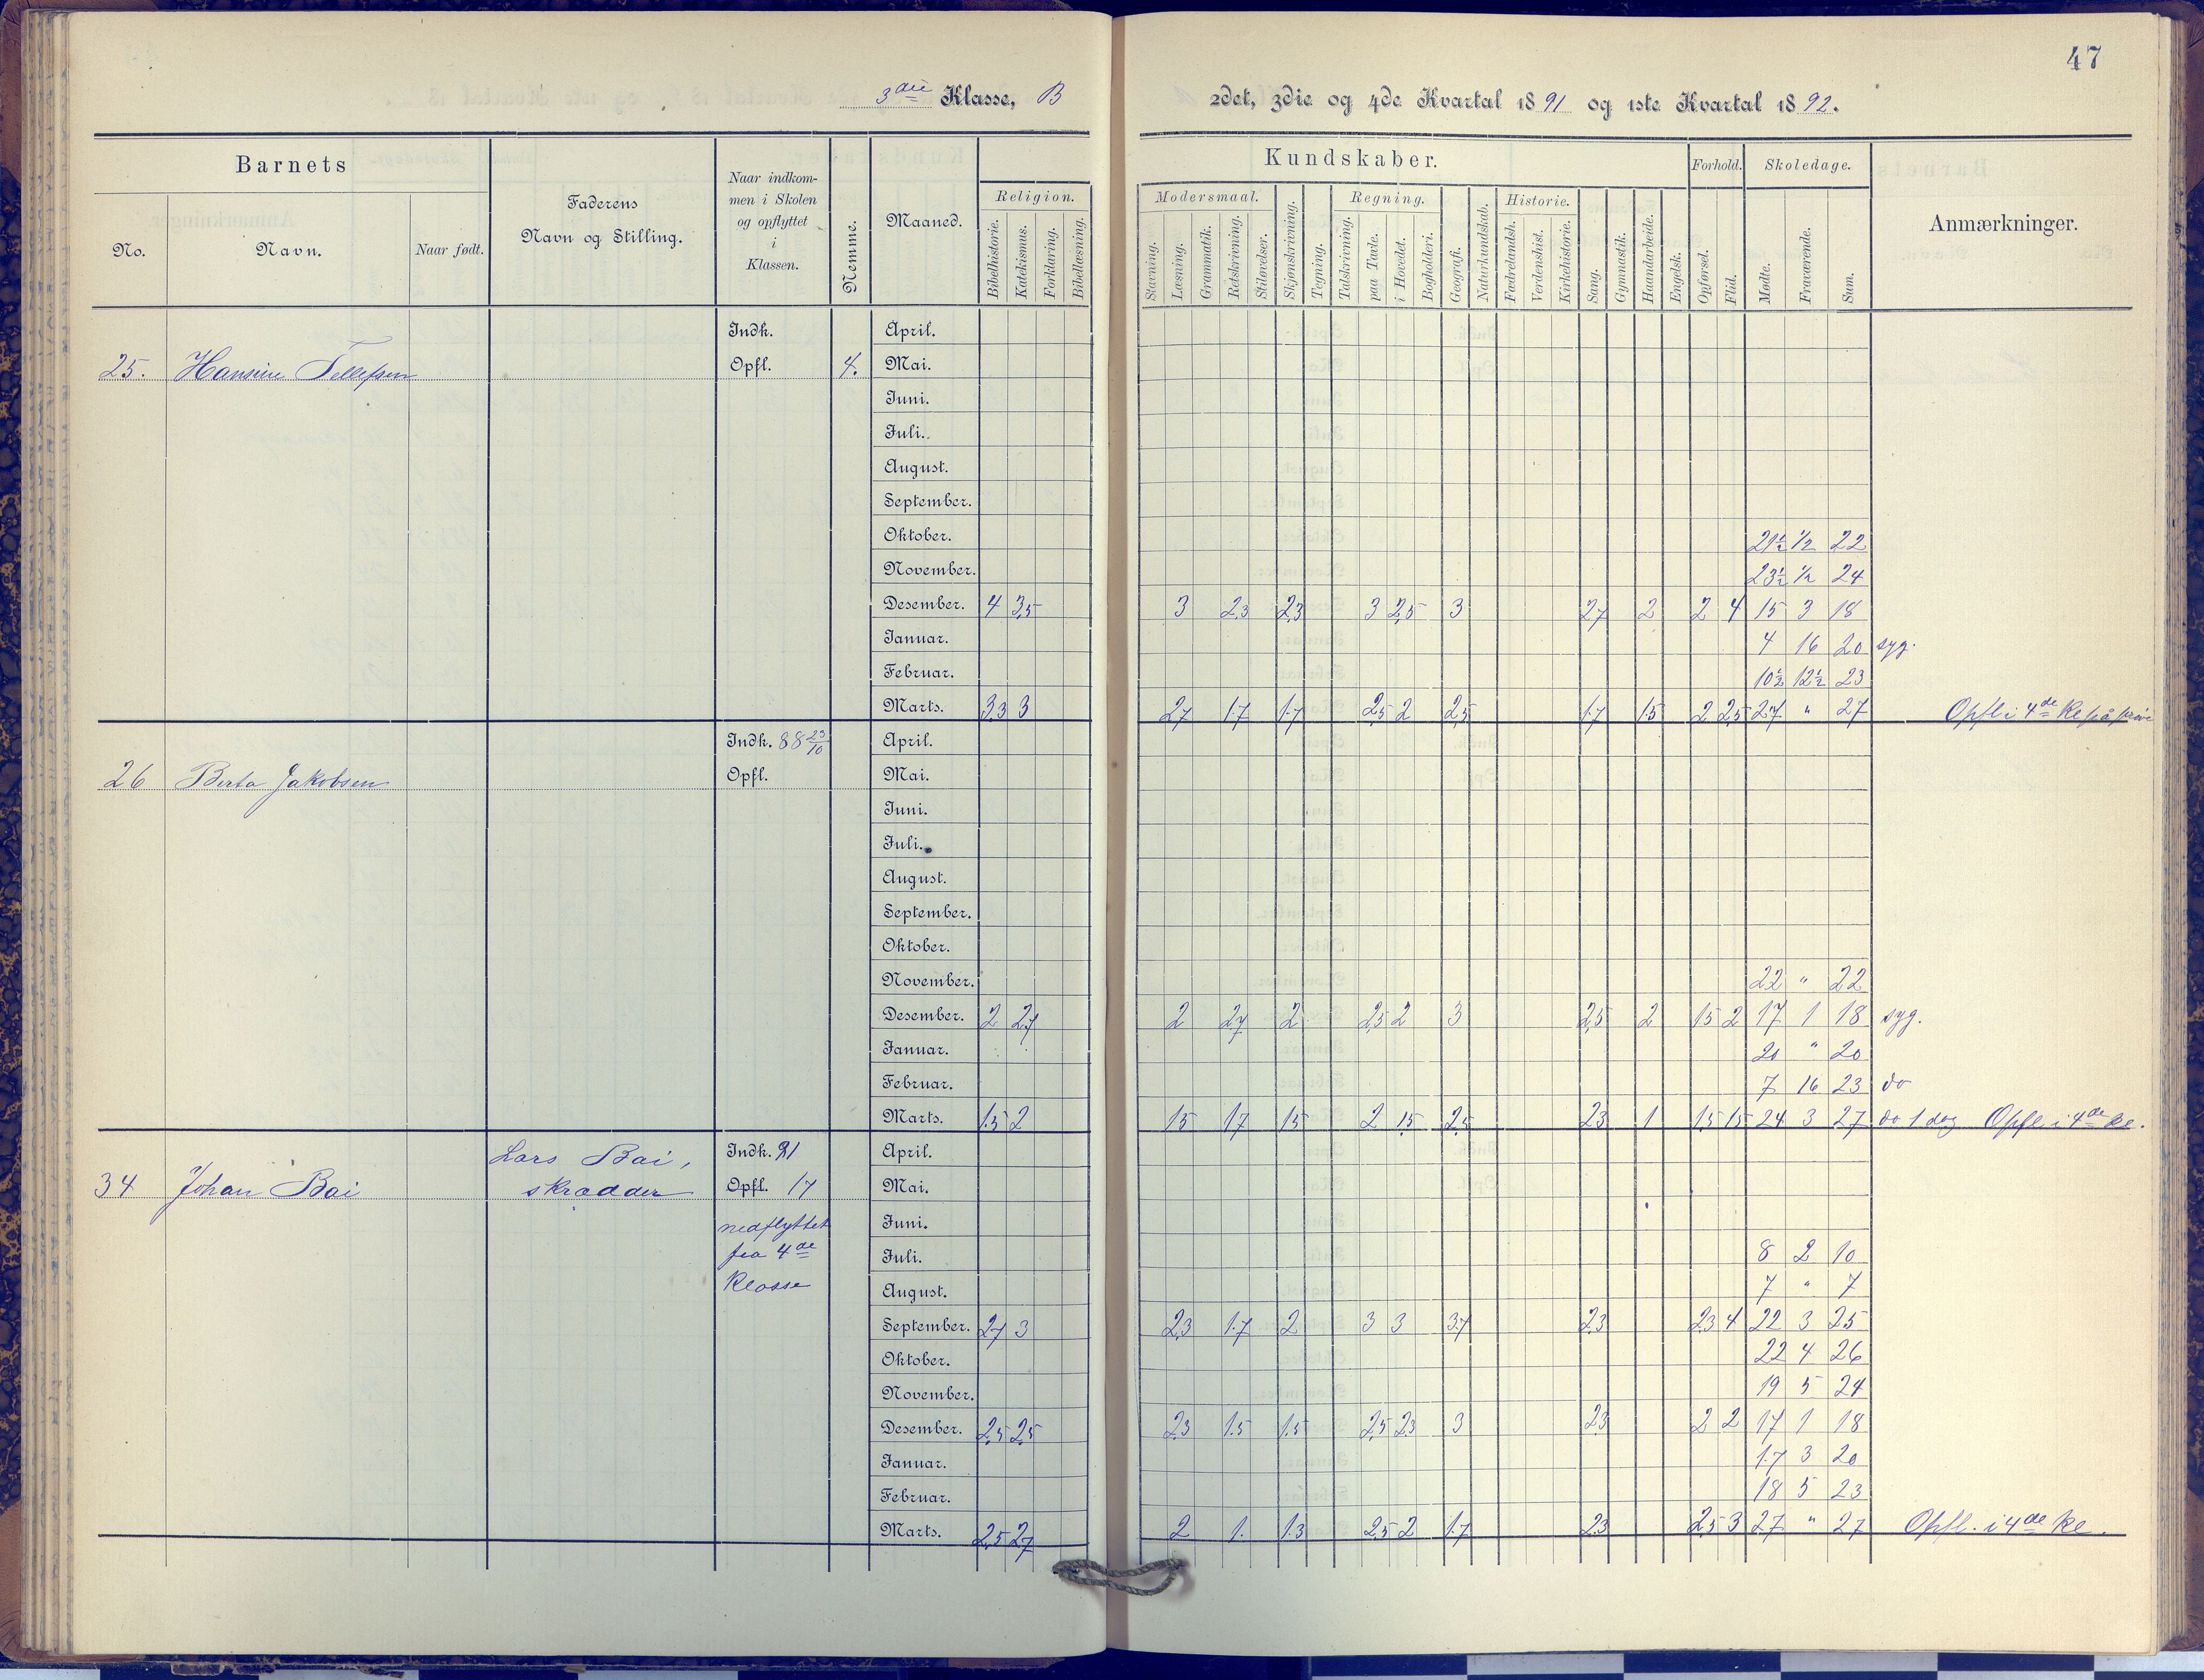 47
3die Klasse, B
2det, 3die og 4de Kvartal 1891 og 1ste Kvartal 1892.
Barnets
No.
Navn.
Naar født.
Faderens
Navn og Stilling.
Naar indkom-
men i Skolen
og opflyttet
i
Klassen.
Nemme.
Maaned.
Religion.
Bibelhistorie.
Katekismus.
Forklaring.
Bibellæsning.
Kundskaber.
Modersmaal.
Stavning.
Læsning.
Grammatik.
Retskrivning.
Stiløvelser.
Skjønskrivning.
Tegning.
Regning.
Talskrivning.
paa Tavle.
i Hovedet.
Bogholderi.
Geografi.
Naturkundskab.
Historie.
Fædrelandsh.
Verdenshist.
Kirkehistorie.
Sang.
Gymnastik.
Haandarbeide.
Engelsk.
Forhold.
Opførsel.
Flid.
Skoledage.
Mødte.
Fraværende.
Sum.
Anmærkninger.
25. Hansine Tellefsen
Indk.
Opfl.
4.
April.
Mai.
Juni.
Juli.
August.
September.
Oktober. 21½ ½ 22
November. 23½ ½ 24
Desember. 4 3,5 3 2,3 2,3 3 2,5 3 2,7 2 2 4 15 3 18
Januar. 4 16 20 syg.
Februar. 10½ 12½ 23
Marts. 3,3 3 2,7 1,7 1,7 2,5 2 2,5 1,7 1,5 2 2,5 27 " 27 Opfl i 4de Kl på
26 Berta Jakobsen
Indk. 88 23/10
Opfl.
April.
Mai.
Juni.
Juli.
August.
September.
Oktober.
November. 22 " 22
Desember. 2 2,7 2 2,7 2 2,5 2 3 2,5 2 1,5 2 17 1 18 syg.
Januar. 20 " 20
Februar. 7 16 23 do
Marts. 1,5 2 1,5 1,7 1,5 2 1,5 2,5 2,3 1 1,5 1,5 24 3 27 do 1 dag Opfl. i 4de Kl.
34 Johan Boi
Lars Boi,
skrædder
Indk. 91
Opfl. 17
nedflyttet
fra 4de
Klasse
April.
Mai.
Juni.
Juli. 8 2 10
August. 7 " 7
September. 2,7 3 2,3 1,7 2 3 3 3,7 2,3 2,3 4 22 3 25
Oktober. 22 4 26
November. 19 5 24
Desember. 2,5 2,5 2,3 1,5 1,5 2,5 2,3 3 2,3 2 2 17 1 18
Januar. 17 3 20
Februar. 18 5 23
Marts. 2,5 2,7 2 1. 1,3 2,5 2 1,7 2,3 2,5 3 27 " 27 Opfl. i 4de Kl.